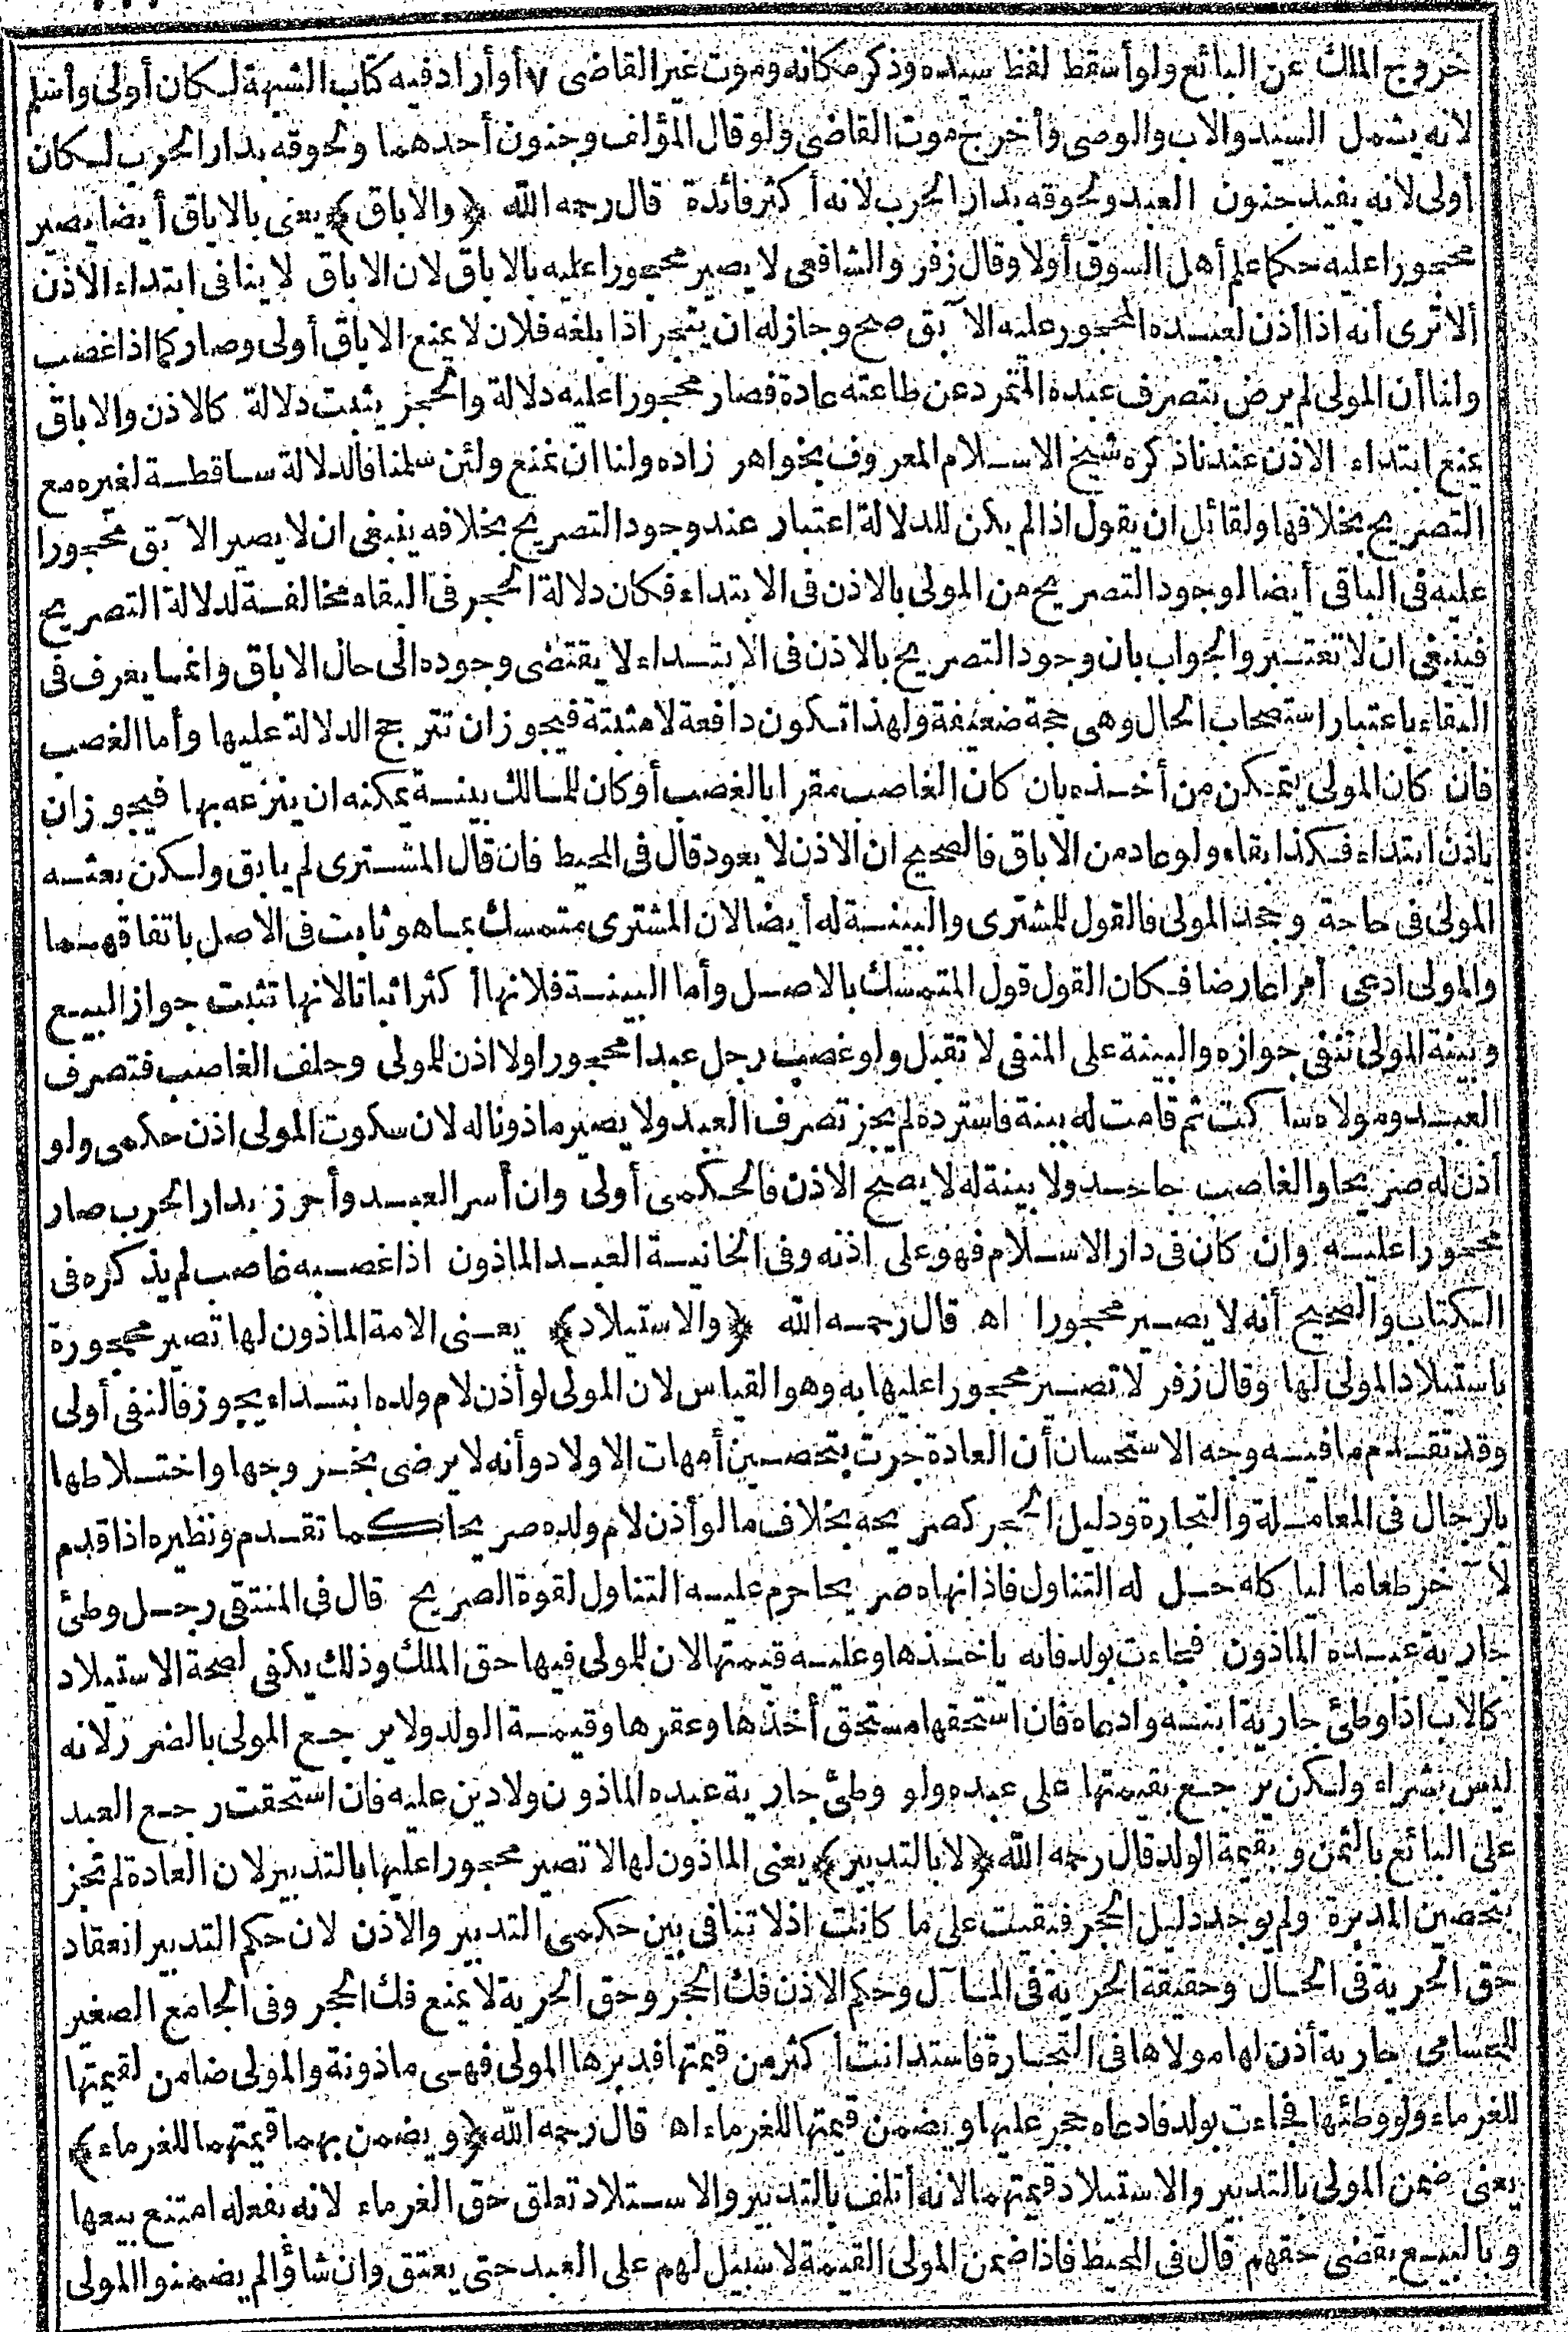 خروج الملك عن البائع ولو أسقط لفظ سيده وذكر مكانه وموت غير القاضى ٧ أو أراد فيه كتاب الشبهة لكان أولى وأسلم
لانه يشمل السيد والاب والوصى وأخرج موت القاضى ولو قال المؤلف وجنون أحدهما ولحوقه بدار الحرب لكان
أولى لانه يفيد جنون العبد ولحوقه بدار الحرب لانه أكثر فائدة قال رحمه الله ﴿والاباق﴾ يعنى بالاباق أيضا يصير
محجورا عليه حكما علم أهل السوق أولا وقال زفر والشافعى لا يصير محجورا عليه بالاباق لان الاباق لا ينافى ابتداء الاذن
ألا ترى أنه اذا أذن لعبده المحجور عليه الآبق صح وجاز له ان يتجر اذا بلغه فلان لا يمنع الاباق أولى وصار كما اذا غصب
ولنا أن المولى لم يرض بتصرف عبده المتمرد عن طاعته عادة فصار محجورا عليه دلالة والحجر يثبت دلالة كالاذن والاباق
يمنع ابتداء الاذن عندنا ذكره شيخ الاسلام المعروف بخواهر زاده ولنا ان نمنع ولئن سلمنا فالدلالة ساقطة لغيره مع
التصريح بخلافها ولقائل ان يقول اذا لم يكن للدلالة اعتبار عند وجود التصريح بخلافه ينبغى ان لا يصير الآبق محجورا
عليه فى الباقى أيضا لوجود التصريح من المولى بالاذن فى الابتداء فكان دلالة الحجر فى البقاء مخالفة لدلالة التصريح
فينبغى ان لا تعتبر والجواب بان وجود التصريح بالاذن فى الابتداء لا يقتضى وجوده الى حال الاباق وانما يعرف فى
البقاء باعتبار استصحاب الحال وهى حجة ضعيفة ولهذا تكون دافعة لا مثبتة فيجوز ان تترجح الدلالة عليها وأما الغصب
فان كان المولى يتمكن من أخذه بان كان الغاصب مقرا بالغصب أو كان للمالك بينة يمكنه ان ينزعه بها فيجوز ان
ياذن ابتداء فكذا بقاء ولو عاد من الاباق فالصحيح ان الاذن لا يعود قال فى المحيط فان قال المشترى لم يابق ولكن بعثه
المولى فى حاجة وجحد المولى فالقول للمشترى والبينة له أيضا لان المشترى متمسك بما هو ثابت فى الاصل باتفاقهما
والمولى ادعى أمرا عارضا فكان القول قول المتمسك بالاصل وأما البينة فلانها أكثر اثباتا لانها تثبت جواز البيع
وبينة المولى تنفى جوازه والبينة على المنفى لا تقبل ولو غصب رجل عبدا محجورا ولا اذن للمولى وحلف الغاصب فتصرف
العبد ومولاه ساكت ثم قامت له بينة فاسترده لم يجز تصرف العبد ولا يصير ماذونا له لان سكوت المولى اذن حكمى ولو
أذن له صريحا والغاصب جاحد ولا بينة له لا يصح الاذن فالحكمى أولى وان أسر العبد وأحرز بدار الحرب صار
محجورا عليه وان كان فى دار الاسلام فهو على اذنه وفى الخانية العبد الماذون اذا غصبه غاصب لم يذكره فى
الكتاب والصحيح أنه لا يصير محجورا اه قال رحمه الله ﴿والاستيلاد﴾ يعنى الامة الماذون لها تصير محجورة
باستيلاد المولى لها وقال زفر لا تصير محجورا عليها به وهو القياس لان المولى لو أذن لام ولده ابتداء يجوز فالنفى أولى
وقد تقدم ما فيه وجه الاستحسان أن العادة جرت بتحصين أمهات الاولاد وأنه لا يرضى بخروجها واختلاطها
بالرجال فى المعاملة والتجارة ودليل الحجر كصريحه بخلاف ما لو أذن لام ولده صريحا كما تقدم ونظيره اذا قدم
لآخر طعاما ليا كله حل له التناول فاذا نهاه صريحا حرم عليه التناول لقوة الصريح قال فى المنتقى رجل وطئ
جارية عبده الماذون فجاءت بولد فانه ياخذها وعليه قيمتها لان للمولى فيها حق الملك وذلك يكفى لصحة الاستيلاد
كالاب اذا وطئ جارية ابنه وادعاه فان استحقها مستحق أخذها وعقرها وقيمة الولد ولا يرجع المولى بالضرر لانه
ليس بشراء ولكن يرجع بقيمتها على عبده ولو وطئ جارية عبده الماذون ولا دين عليه فان استحقت رجع العبد
على البائع بالثمن وبقيمة الولد قال رحمه الله ﴿لا بالتدبير﴾ يعنى الماذون لها لا تصير محجورا عليها بالتدبير لان العادة لم تجز
بتحصين المدبرة ولم يوجد دليل الحجر فبقيت على ما كانت اذ لا تنافى بين حكمى التدبير والاذن لان حكم التدبير انعقاد
حق الحرية فى الحال وحقيقة الحرية فى المآل وحكم الاذن فك الحجر وحق الحرية لا يمنع فك الحجر وفى الجامع الصغير
الحسامى جارية أذن لها مولاها فى التجارة فاستدانت أكثر من قيمتها فدبرها المولى فهى ماذونة والمولى ضامن لقيمتها
للغرماء ولو وطئها فجاءت بولد فادعاه حجر عليها ويضمن قيمتها للغرماء اه قال رحمه الله ﴿ويضمن بهما قيمتهما للغرماء﴾
يعنى ضمن المولى بالتدبير والاستيلاد قيمتهما لانه أتلف بالتدبير والاستلاد تعلق حق الغرماء لانه بفعله امتنع بيعها
وبالبيع يقضى حقهم قال فى المحيط فاذا ضمن المولى القيمة لا سبيل لهم على العبد حتى يعتق وان شاؤا لم يضمنوا المولى